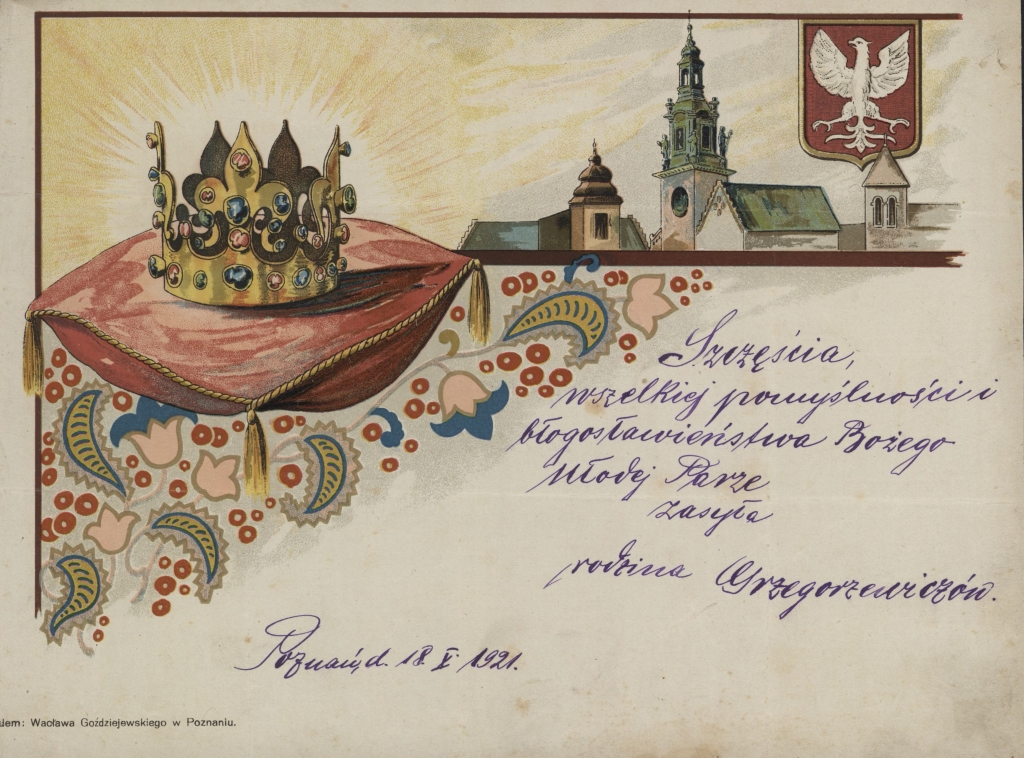 Szczęścia,
wszelkiej pomyślności i
błogosławieństwa Bożego
Młodej Parze
zasyła
rodzina Grzegorzewiczów.
Poznań, d. 18. V. 1921.
Wacława Goździejewskiego w Poznaniu.